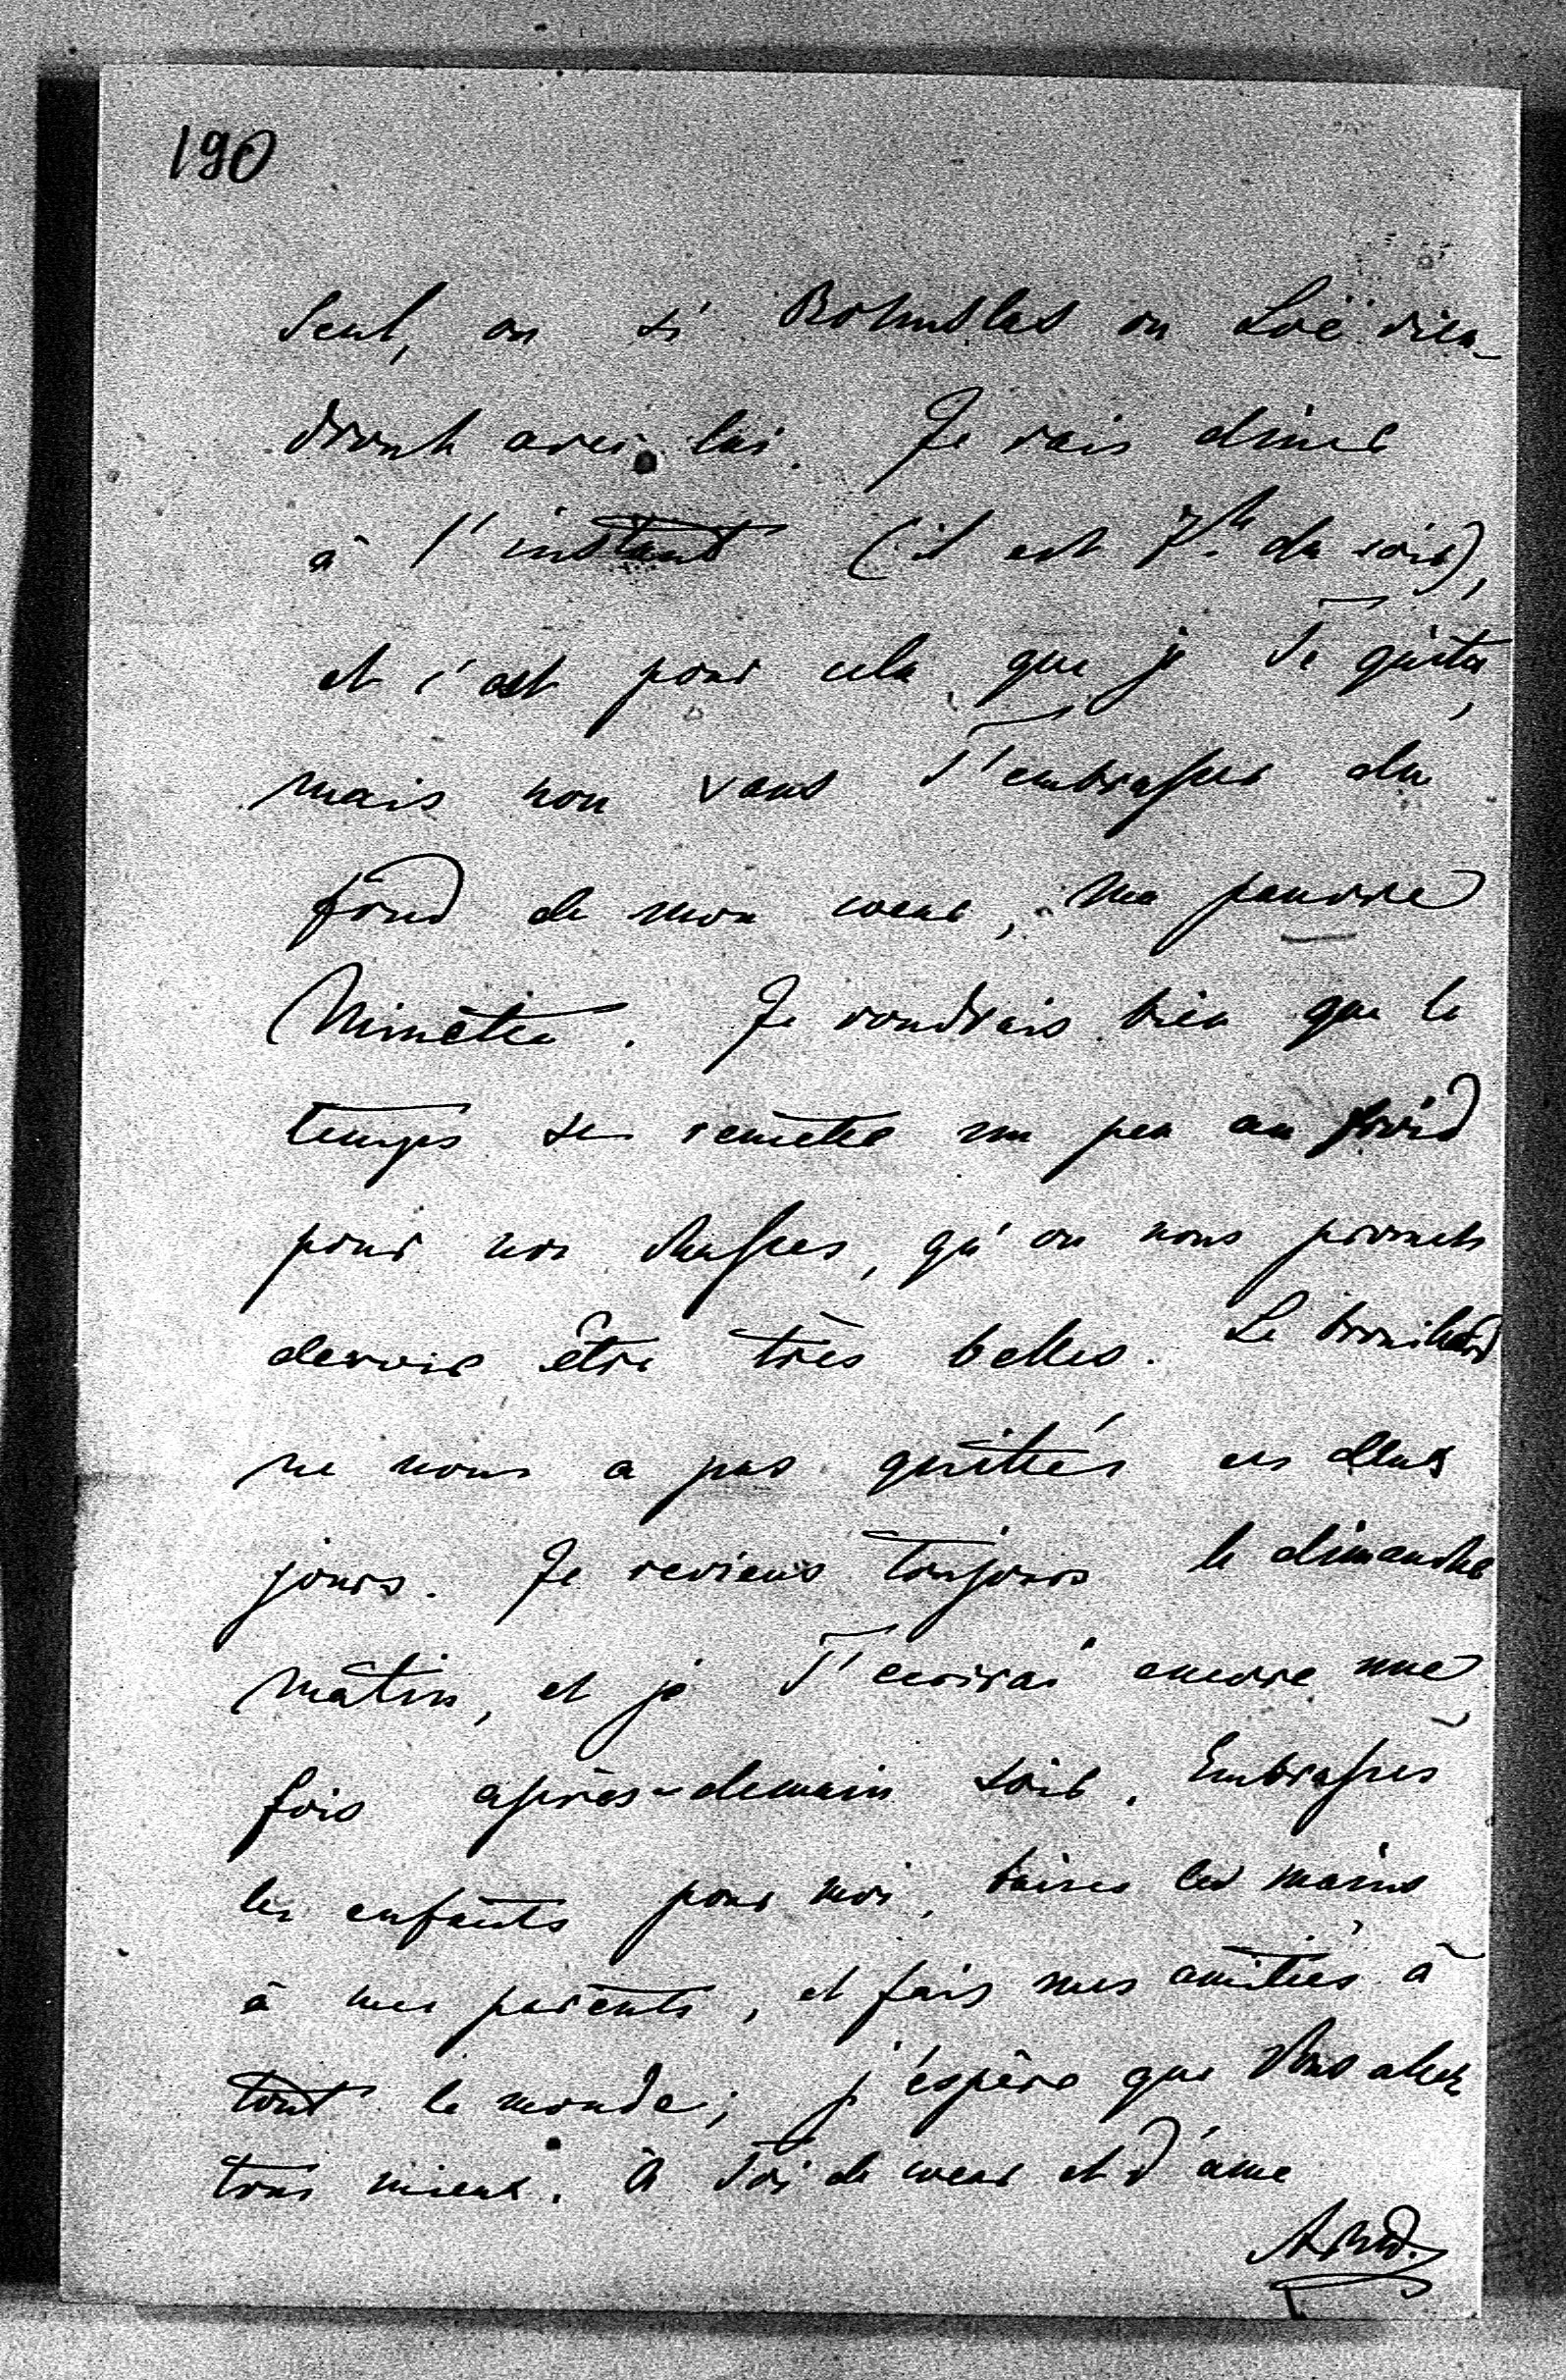 190
seul, ou si Bohuslas ou Loë vien-
dront avec lui. Je vais diner
à l'instant (il est 7h du soir),
et c'est pour cela que je Te quitte,
mais non sans T'embrasser du
fond de mon coeur, ma pauvre
Mimètte. Je voudrais bien que le
temps se remette un peu au froid
pour nos chasses, qu'on nous promets
devoir être très belles. Le brouillard
ne nous a pas quittés ces deux
jours. Je reviens toujours le dimanche
matin, et je T'ecrirai encore une
fois après-demain soir. Embrasses
les enfants pour moi, baises les mains
à mes parents, et fais mes amitiés à
tout le monde; j'éspère que Vous allez
tous mieux. à Toi de coeur et d'âme